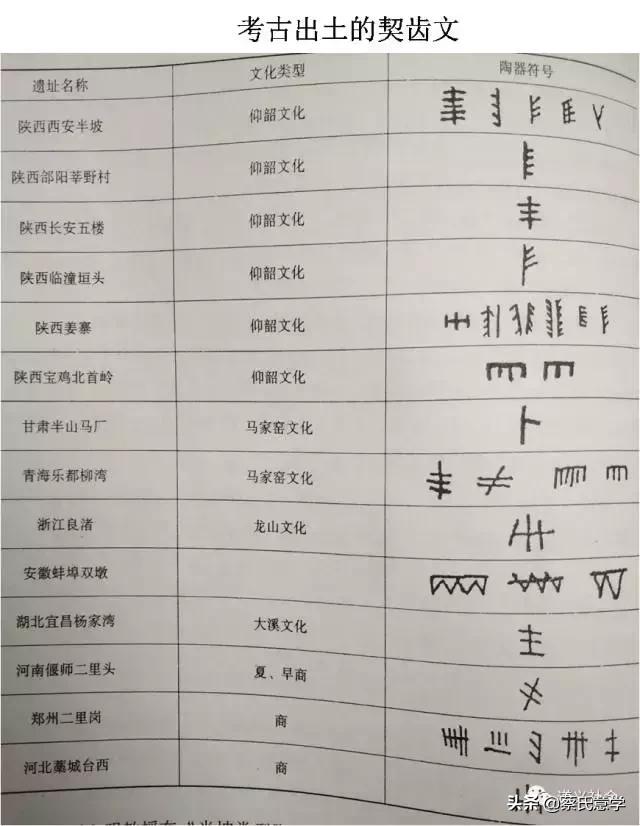 考古出土的契齿文
遗址名称 文化类型 陶器符号
陕西西安半坡 仰韶文化
陕西郃阳莘野村 仰韶文化
陕西长安五楼 仰韶文化
陕西临潼垣头 仰韶文化
陕西姜寨 仰韶文化
陕西宝鸡北首岭 仰韶文化
甘肃半山马厂 马家窑文化
青海乐都柳湾 马家窑文化
浙江良渚 龙山文化
安徽蚌埠双墩
湖北宜昌杨家湾 大溪文化
河南偃师二里头 夏、早商
郑州二里岗 商
河北藁城台西 商
头条 @蔡氏意学